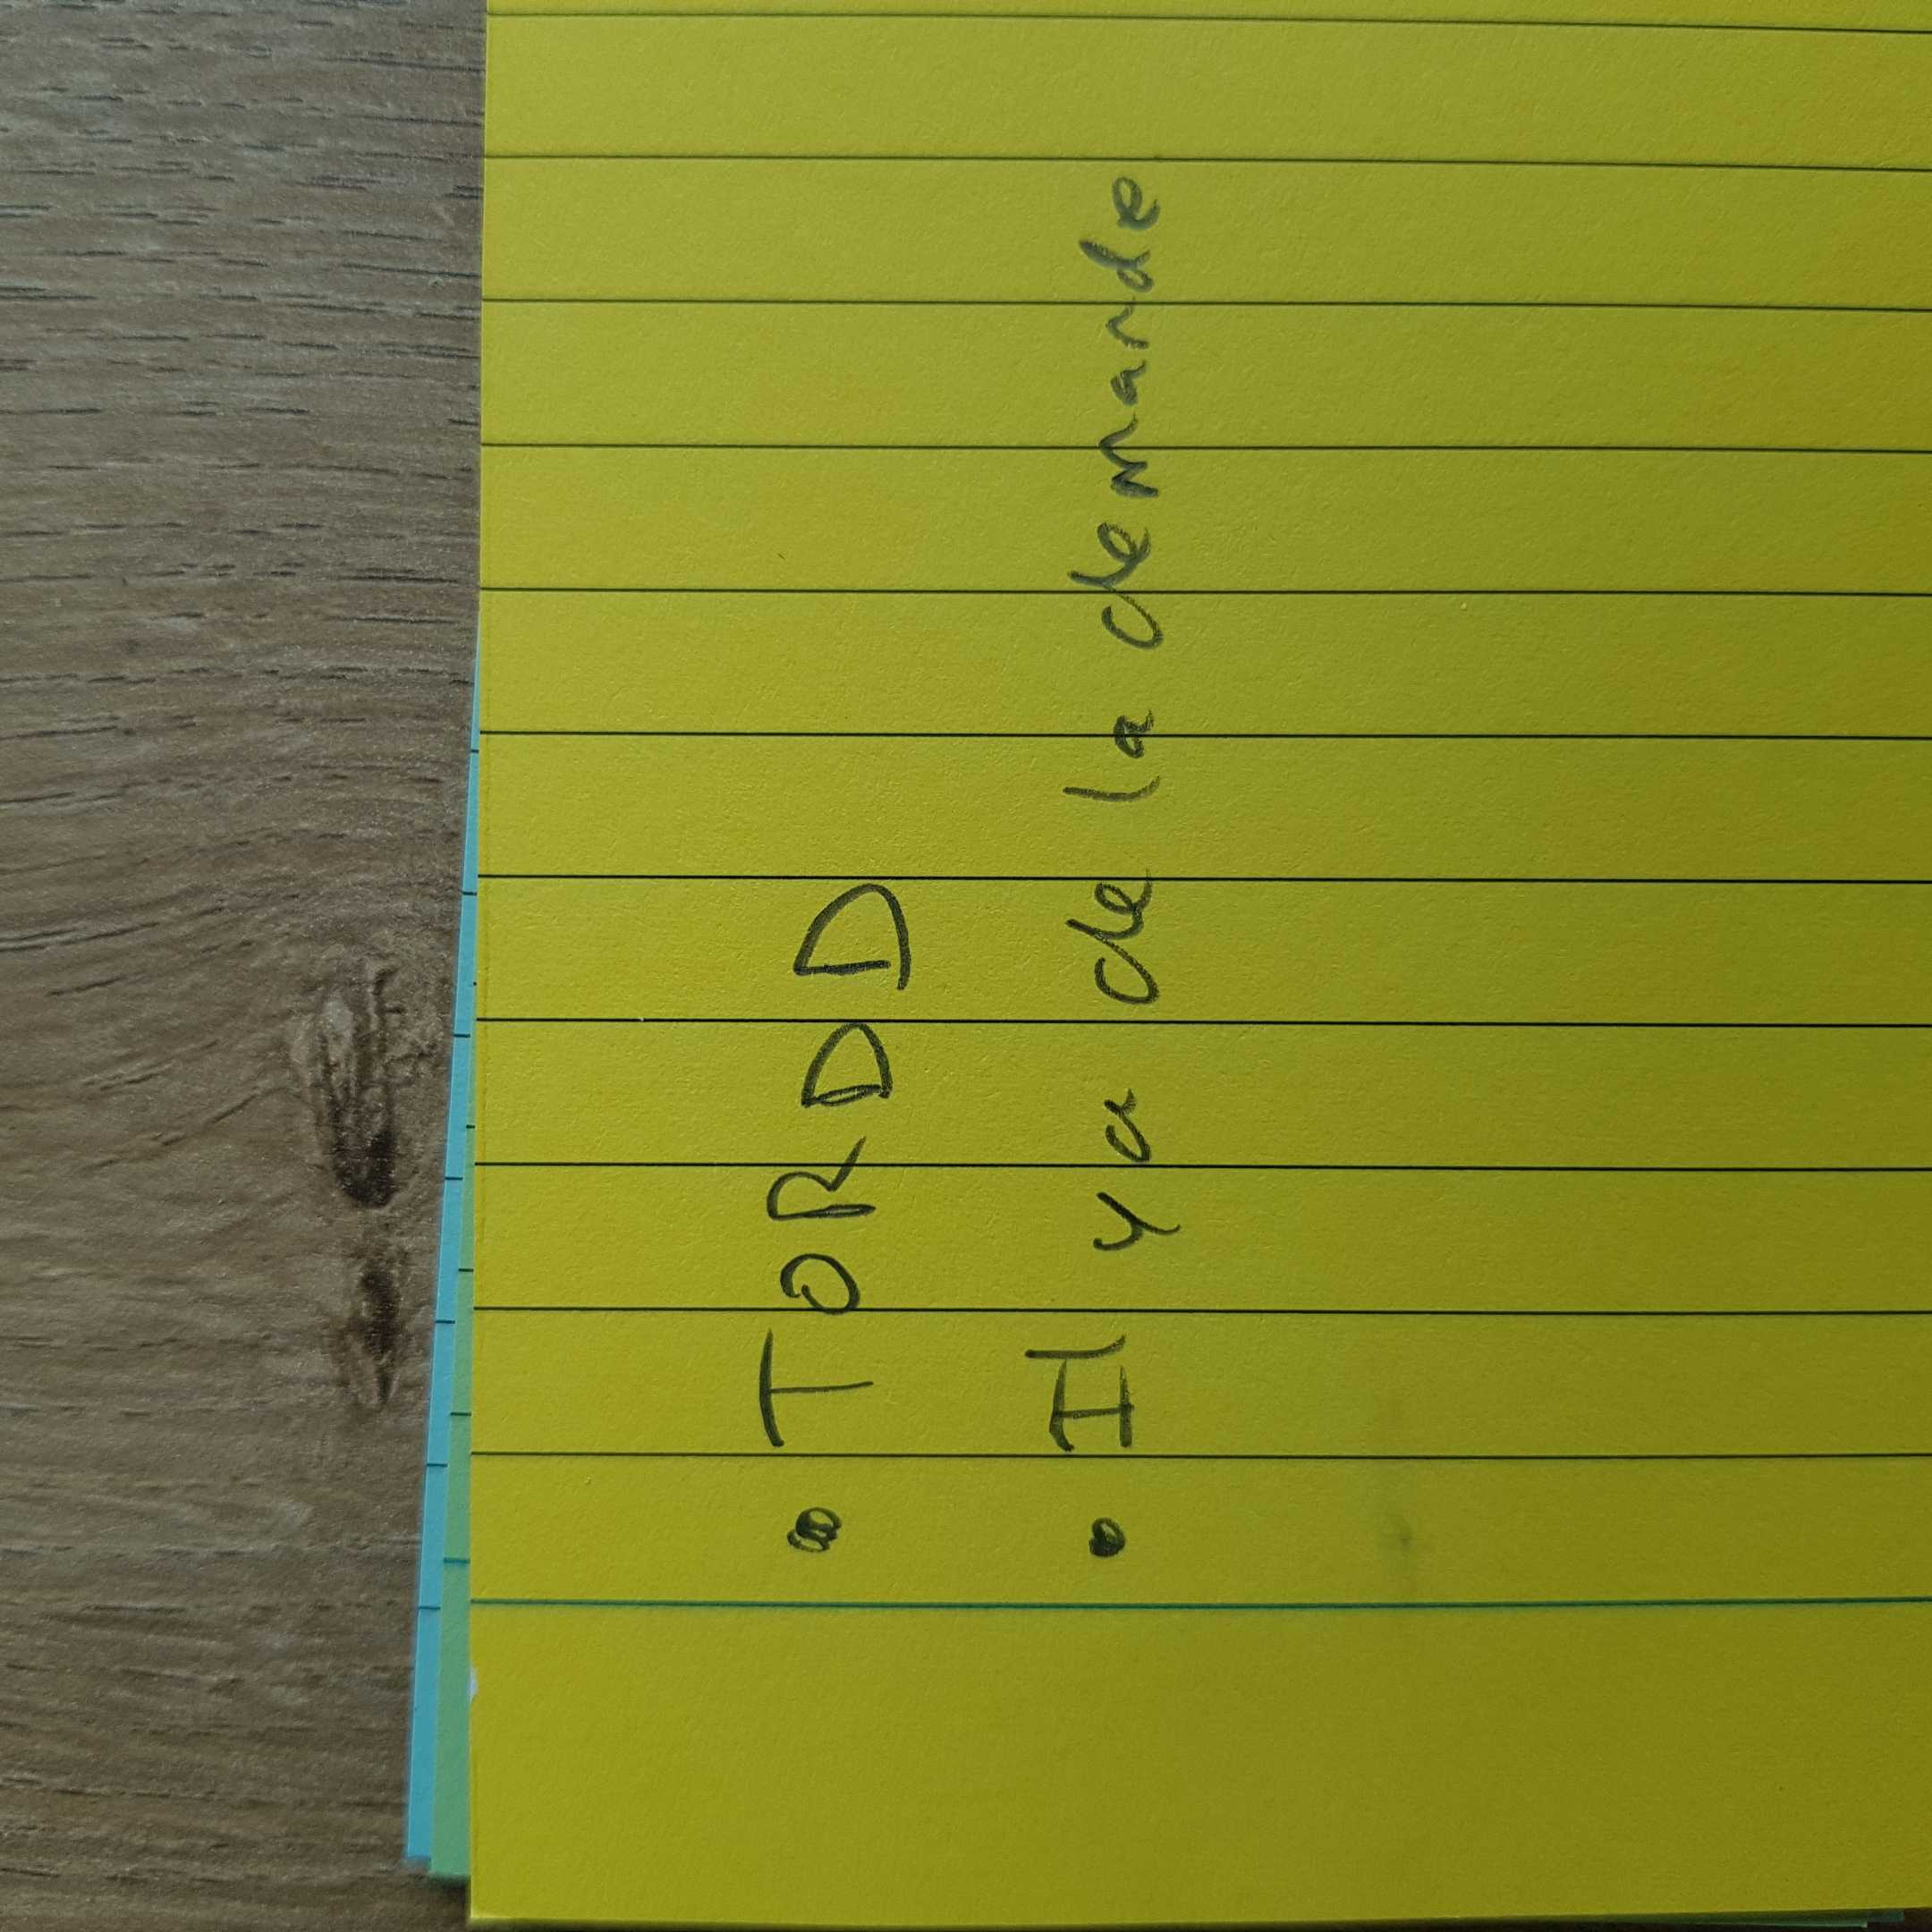 • TORDD
• Il ya de la demande